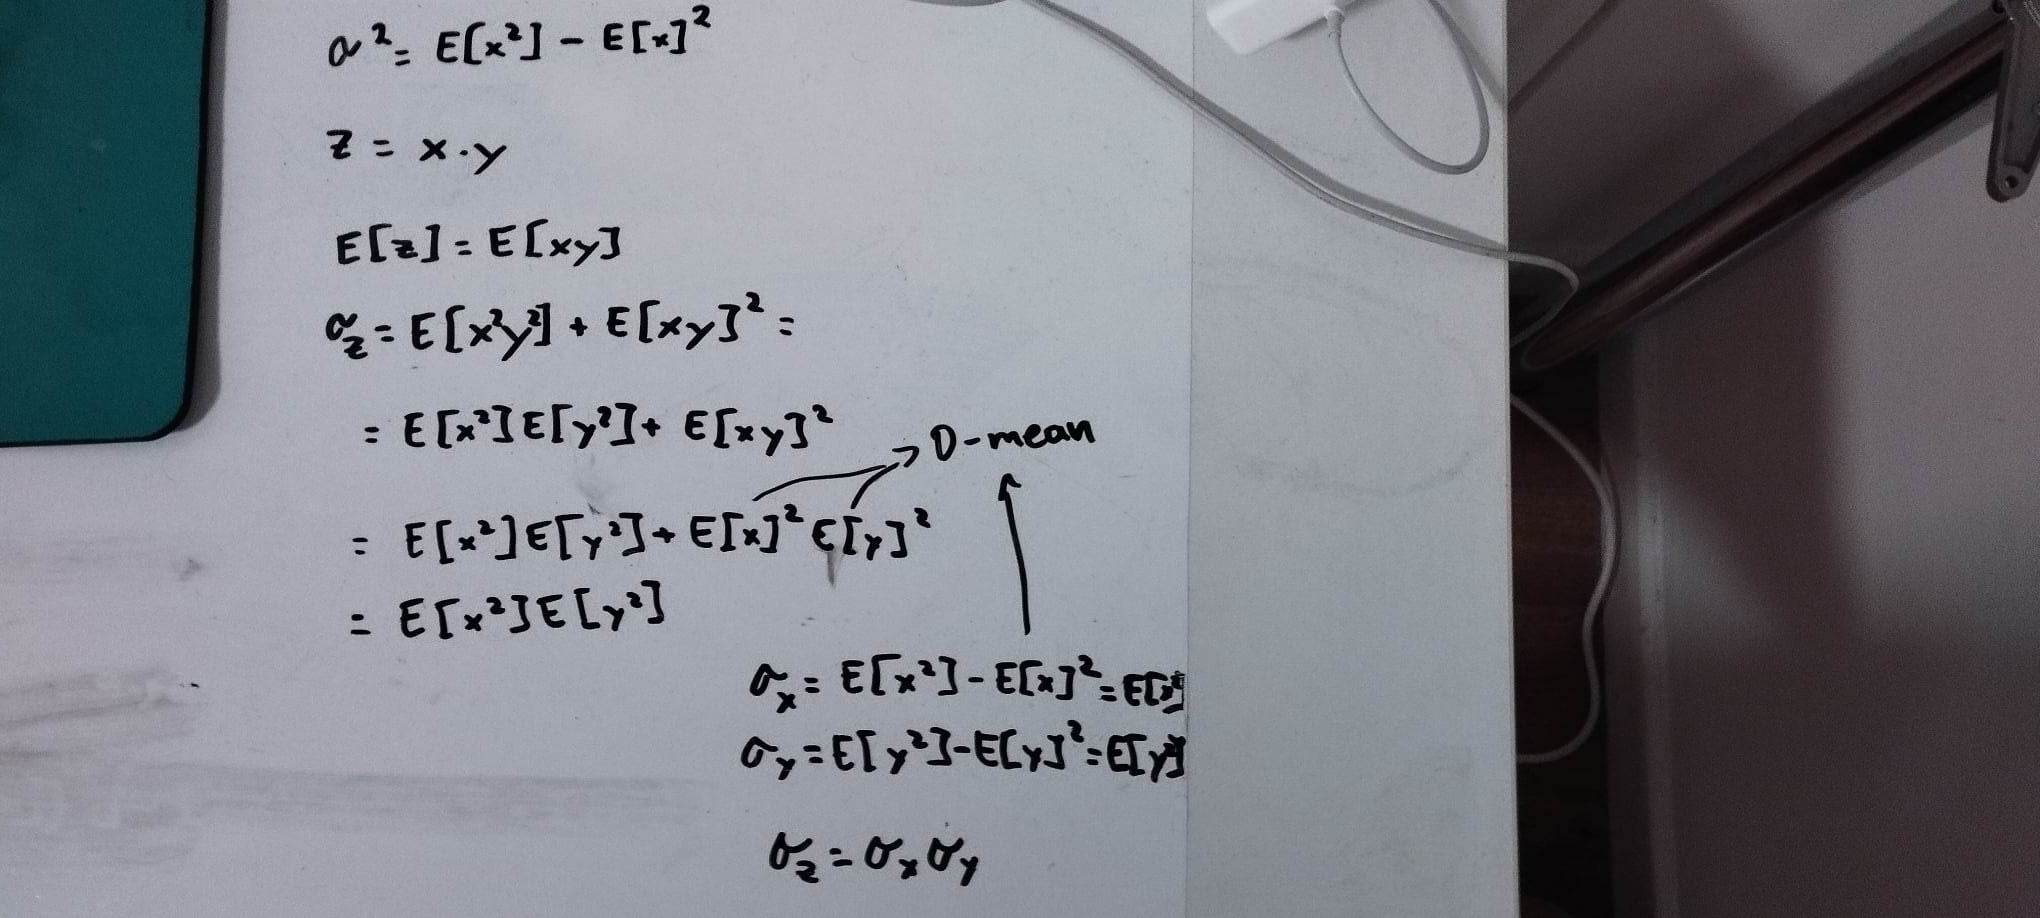 σ² = E[x²] - E[x]²
z = x·y
E[z] = E[xy]
σz = E[x²y²] + E[xy]² =
= E[x²]E[y²] + E[xy]²
0-mean
= E[x²]E[y²] + E[x]² E[y]²
= E[x²]E[y²]
σx = E[x²] - E[x]² = E[x²]
σy = E[y²] - E[y]² = E[y²]
σz = σx σy